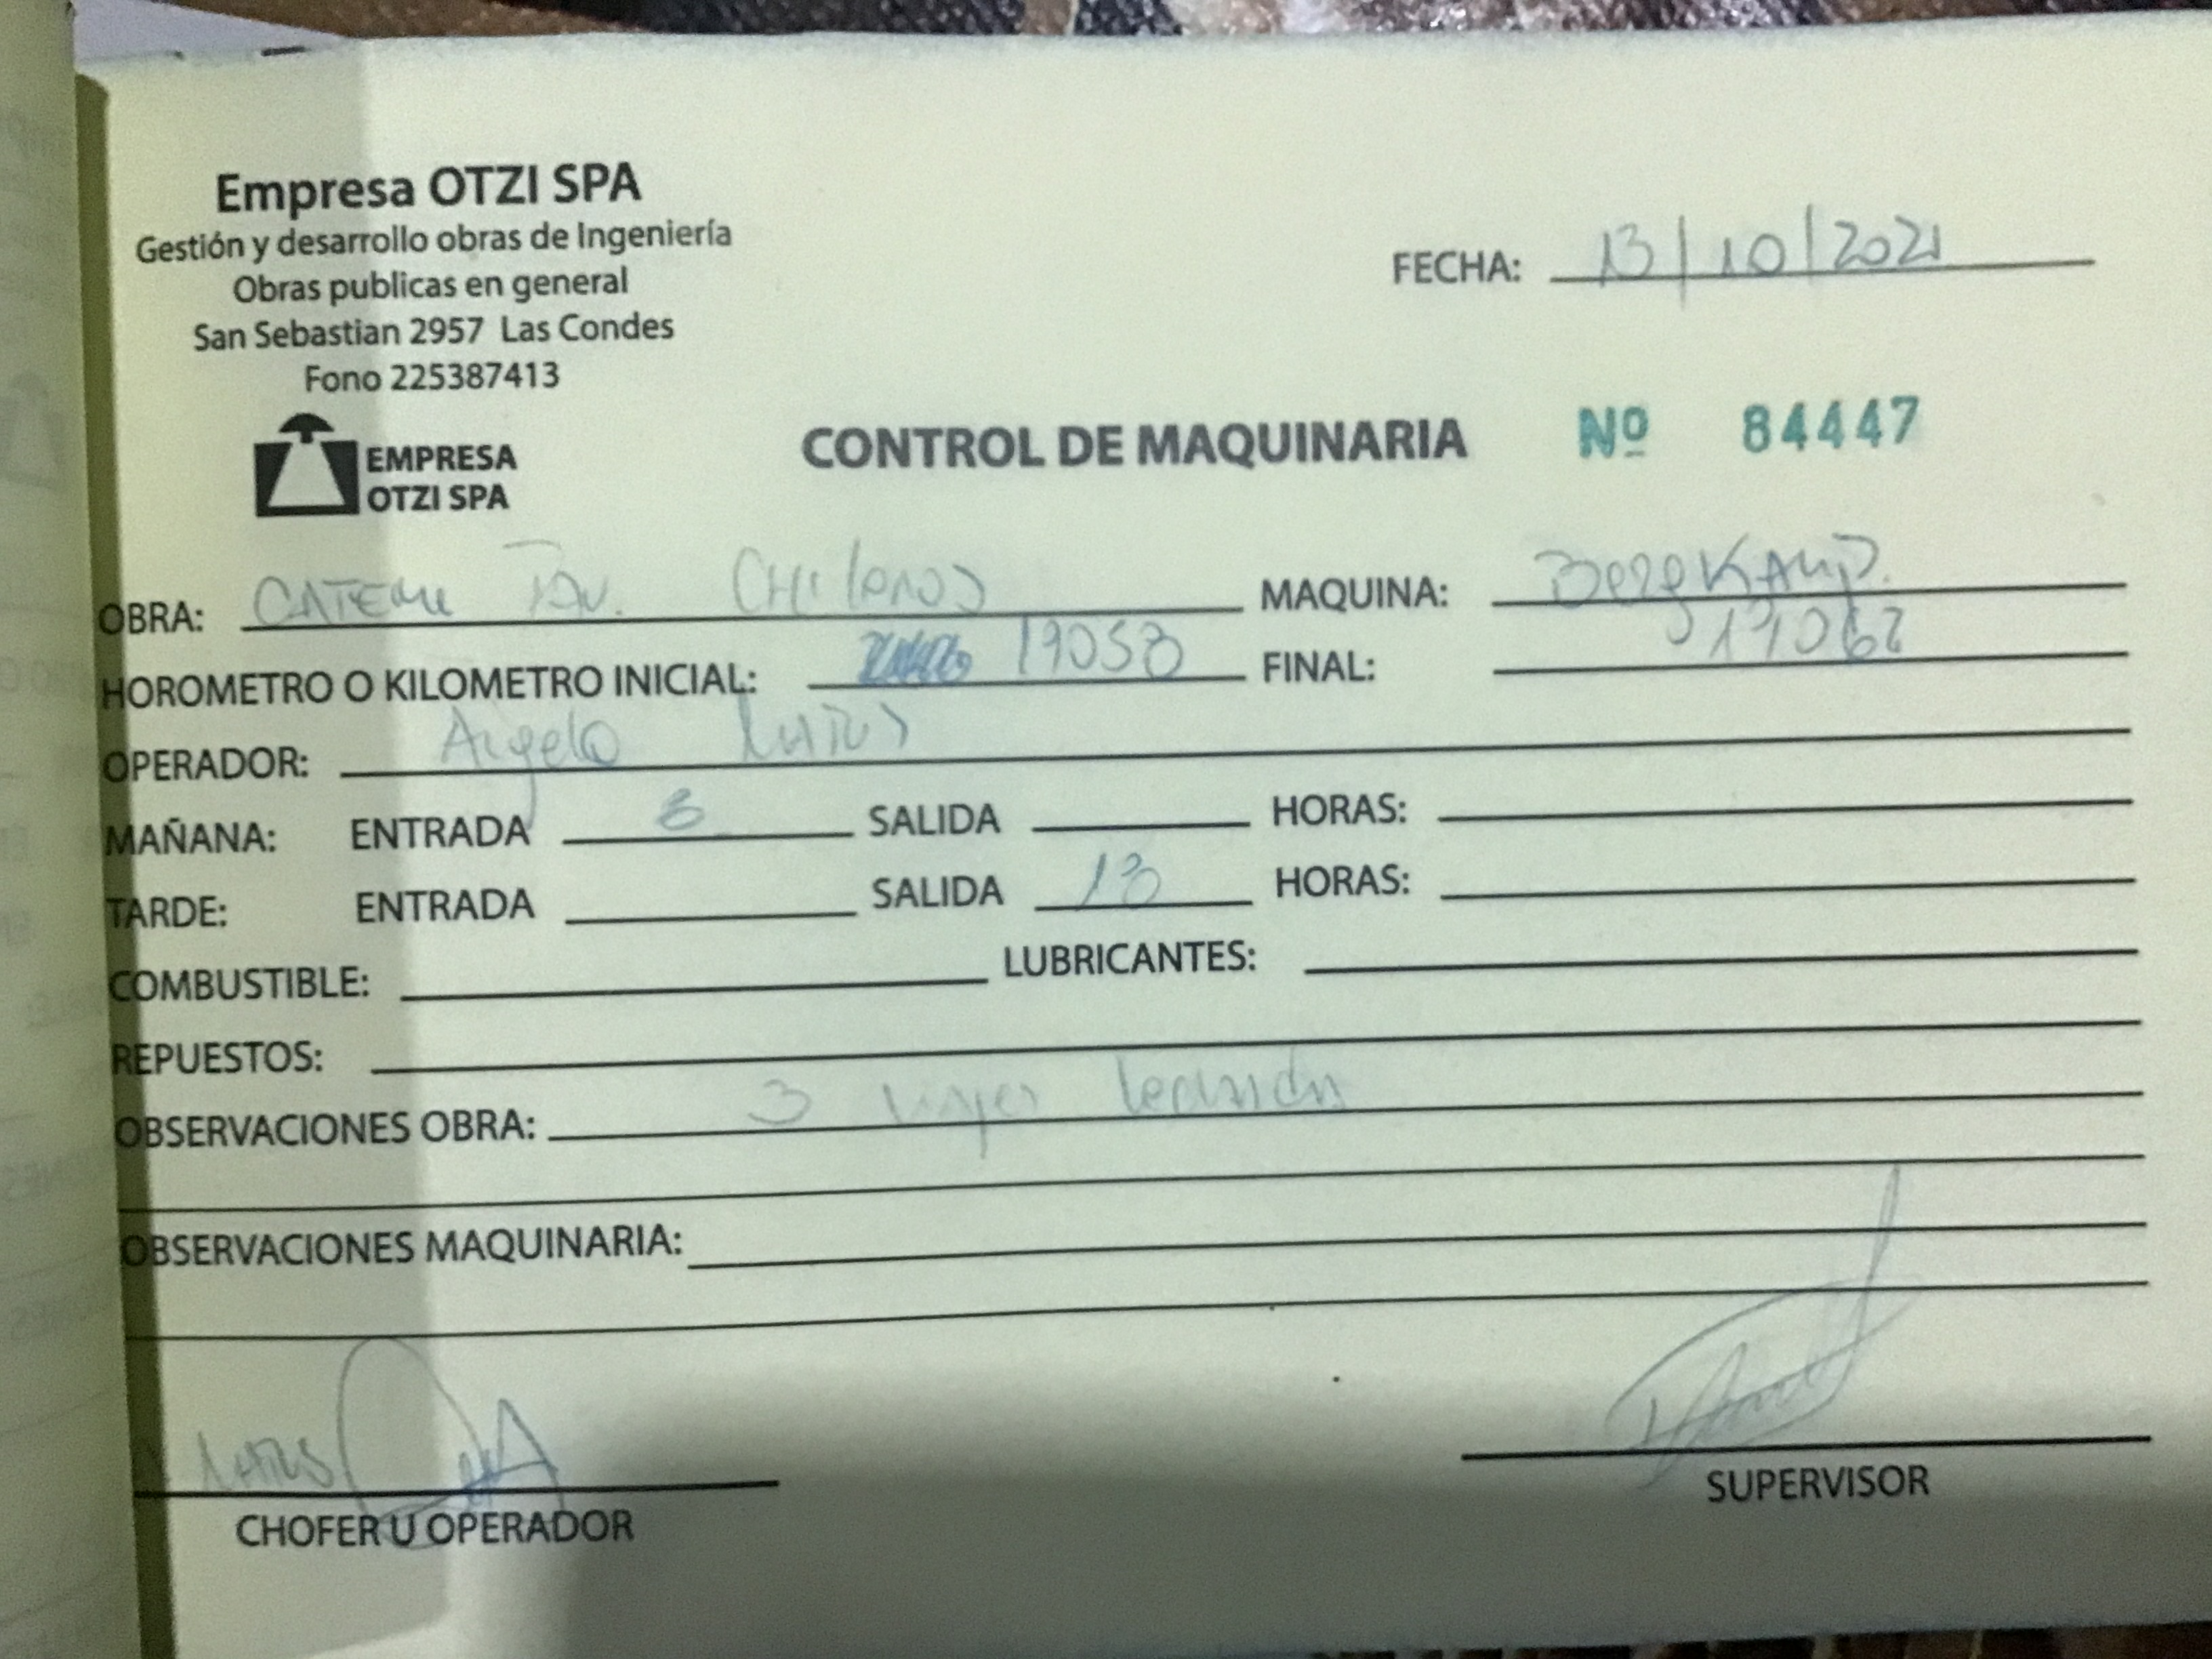 Empresa OTZI SPA
Gestión y desarrollo obras de Ingeniería
Obras publicas en general
San Sebastian 2957 Las Condes
Fono 225387413
EMPRESA
OTZI SPA
FECHA: 13/10/2021
CONTROL DE MAQUINARIA Nº 84447
OBRA: Pav. Chilenos MAQUINA: BergKAmp.
HOROMETRO O KILOMETRO INICIAL: 19058 FINAL: 19062
OPERADOR: Angelo
MAÑANA: ENTRADA 8 SALIDA HORAS:
TARDE: ENTRADA SALIDA 18 HORAS:
COMBUSTIBLE: LUBRICANTES:
REPUESTOS:
OBSERVACIONES OBRA: 3 viajes lechada
OBSERVACIONES MAQUINARIA:
CHOFER U OPERADOR
SUPERVISOR